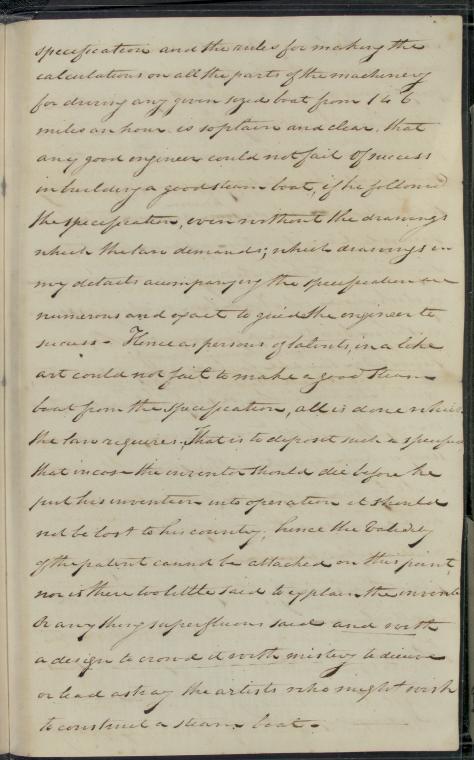 specification and the rules for making the
calculations on all the parts of the machinery
for driving any given sized boat from 1 to 6
miles an hour is so plain and clear, that
any good engineer could not fail of success
in building a good steam boat, if he followed
the specification, even without the drawings
which the law demands; which drawings in
my details accompanying the specification are
numerous and exact to guide the engineer to
success - Hence as persons of talents, in a like
art could not fail to make a good steam
boat from the specification, all is done which
the law requires. That is to deposit such a specifi
that in case the inventor should die before he
put his invention into operation it should
not be lost to his country, hence the validity
of the patent cannot be attacked on this point,
nor is there too little said to explain the invent
Or any thing superfluous said and with
a design to crowd it with mistery to deceive
or lead astray the artists who might wish
to construct a steam boat.